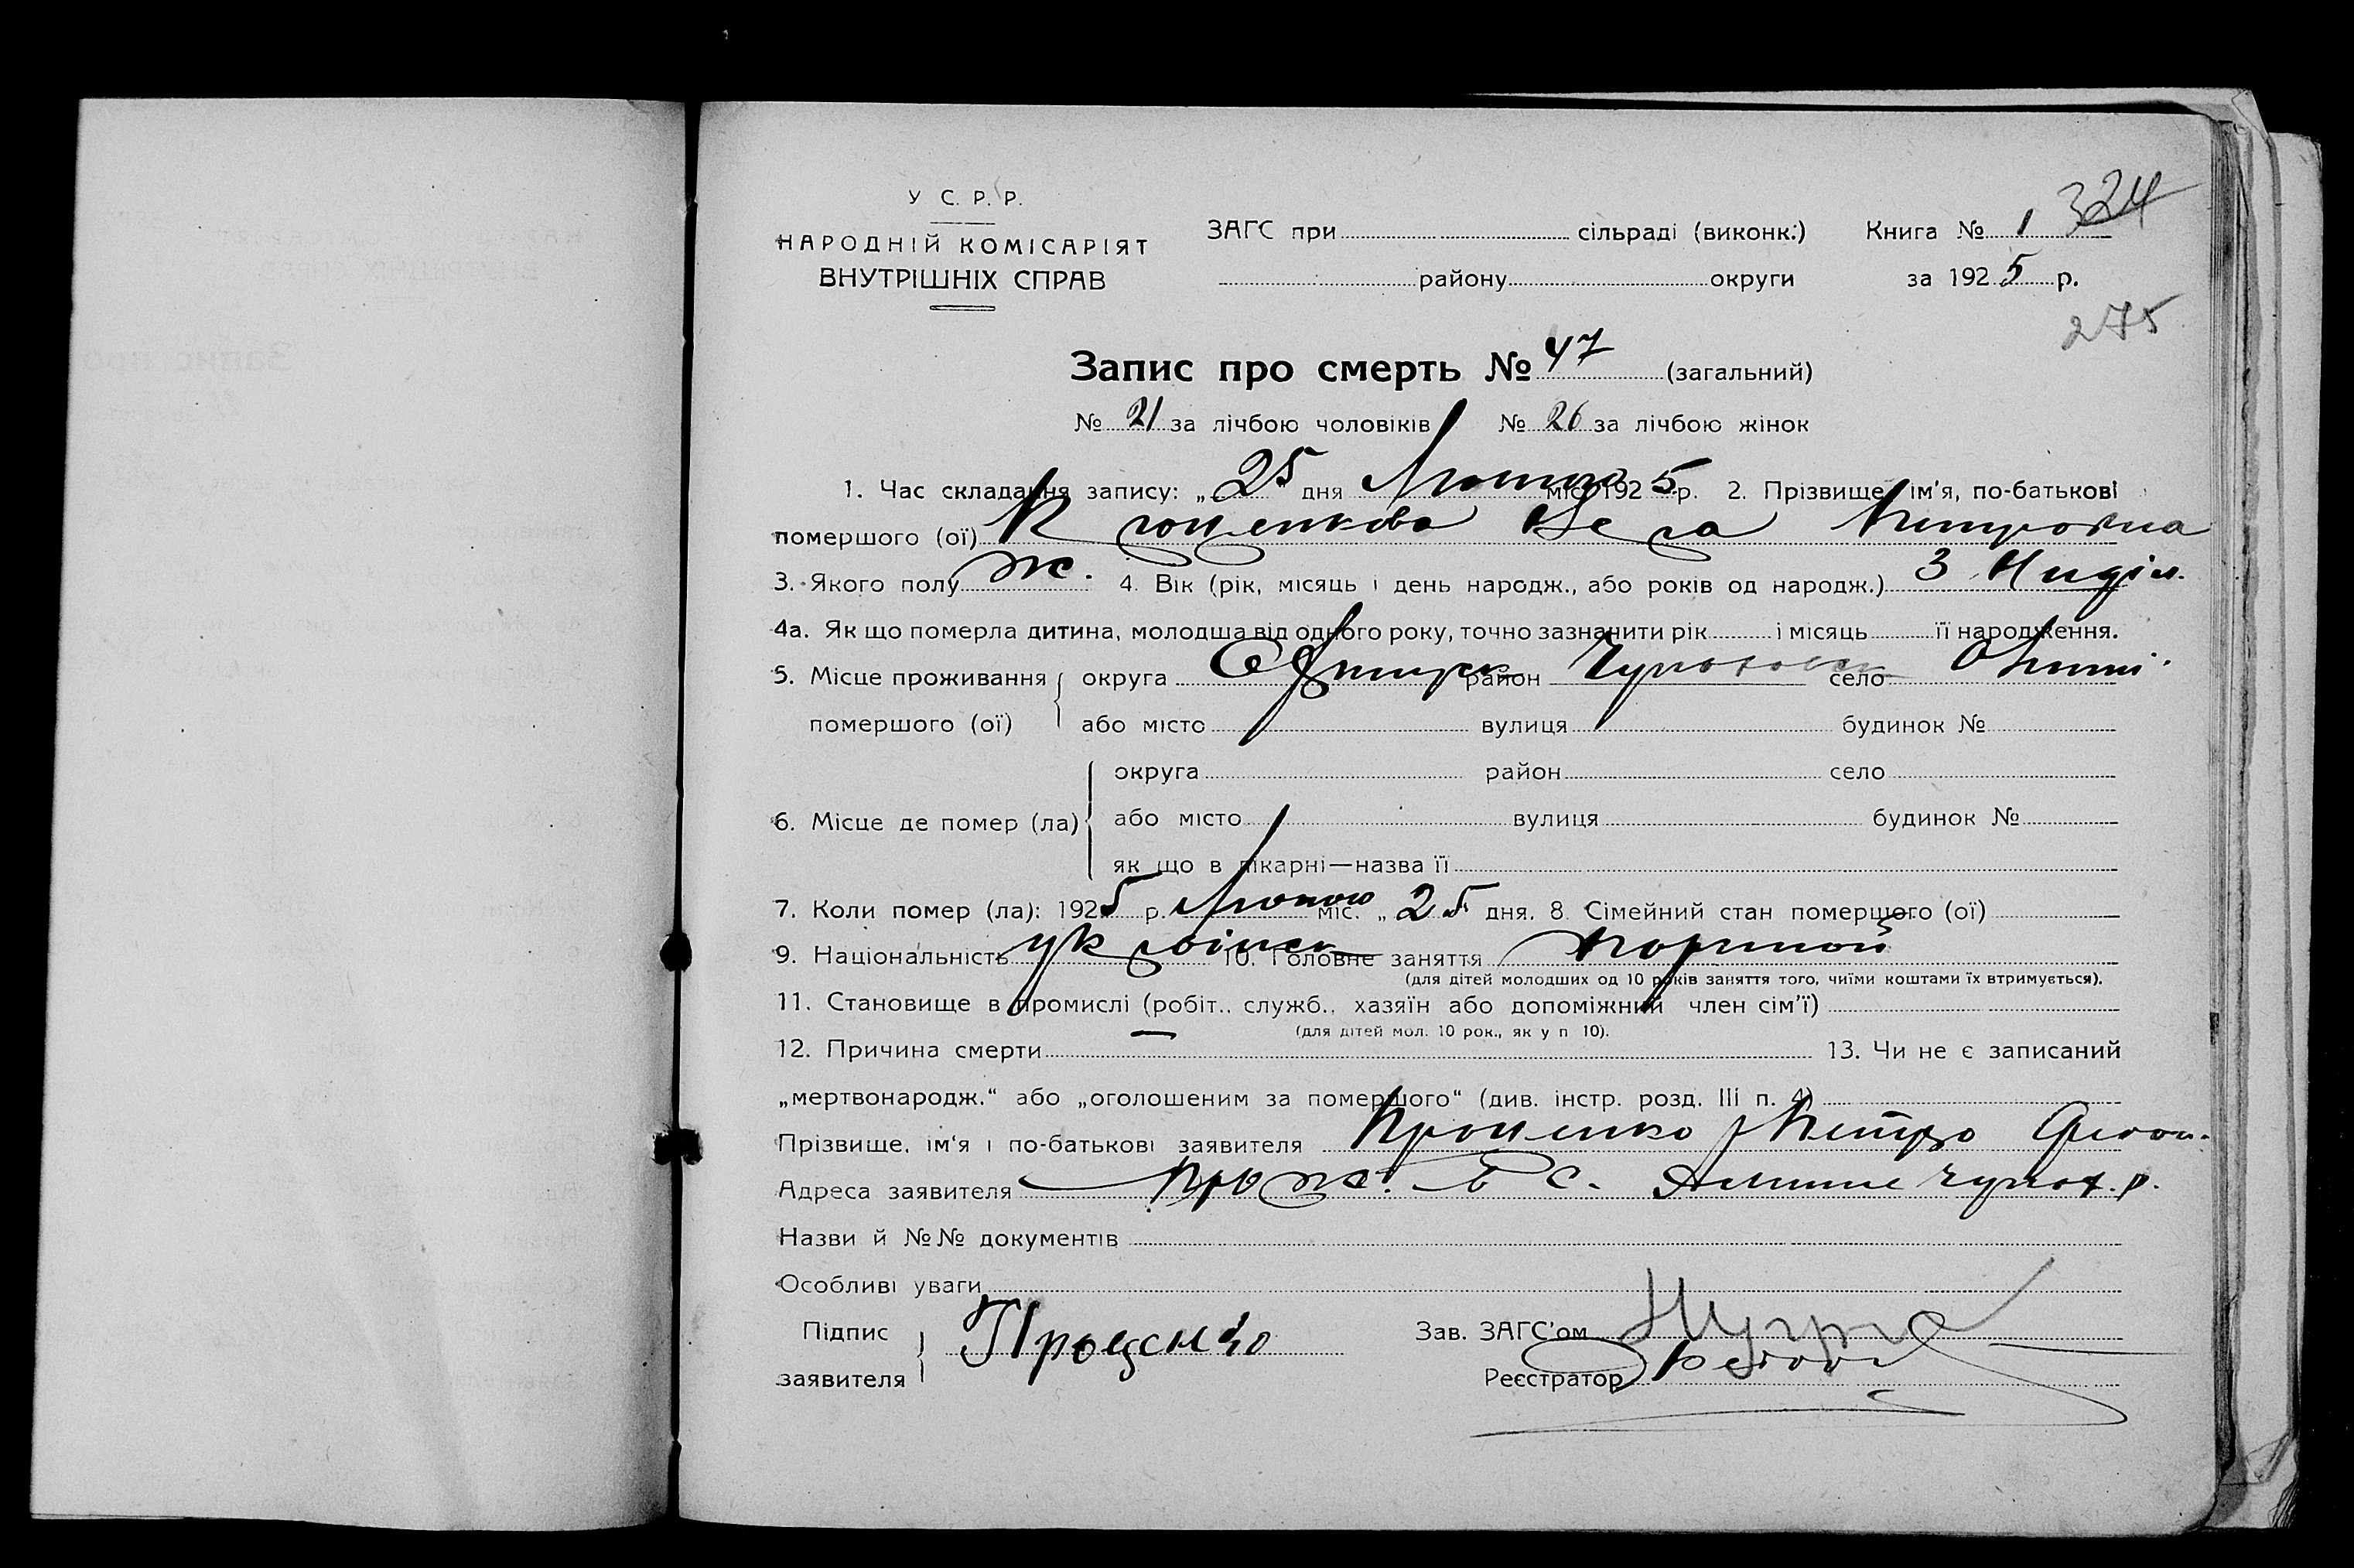 У С. Р. Р.
НАРОДНІЙ КОМІСАРІЯТ
ВНУТРІШНІХ СПРАВ
ЗАГС при сільраді (виконк.) Книга № 1 324
району округи за 1925 р.
275
Запис про смерть № 47 (загальний)
№ 21 за лічбою чоловіків № 26 за лічбою жінок
1. Час складання запису: „25" дня Лютого міс. 1925 р. 2. Прізвище, ім'я, по-батькові
помершого (ої)
3. Якого полу ж. 4. Вік (рік, місяць і день народж., або років од народж.) 3 Ниділ.
4а. Як що померла дитина, молодша від одного року, точно зазначити рік і місяць її народження.
5. Місце проживання округа район село
помершого (ої) або місто вулиця будинок №
округа район село
6. Місце де помер (ла) або місто вулиця будинок №
як що в лікарні—назва її
7. Коли помер (ла): 1925 р. Лютого міс. „25 дня. 8. Сімейний стан померщого (ої)
9. Національність 10. Головне заняття портной
(для дітей молодших од 10 років заняття того, чиїми коштами їх втримується).
11. Становище в промислі (робіт., служб., хазяїн або допоміжний член сім'ї)
(для дітей мол. 10 рок., як у п 10).
12. Причина смерти — 13. Чи не є записаний
„мертвонародж.“ або „оголошеним за помершого“ (див. інстр. розд. III п. 4)
Прізвище, ім'я і по-батькові заявителя Проценко Петро
Адреса заявителя прож. в с.
Назви й №№ документів
Особливі уваги
Підпис Проценко Зав. ЗАГС'ом
заявителя Реєстратор